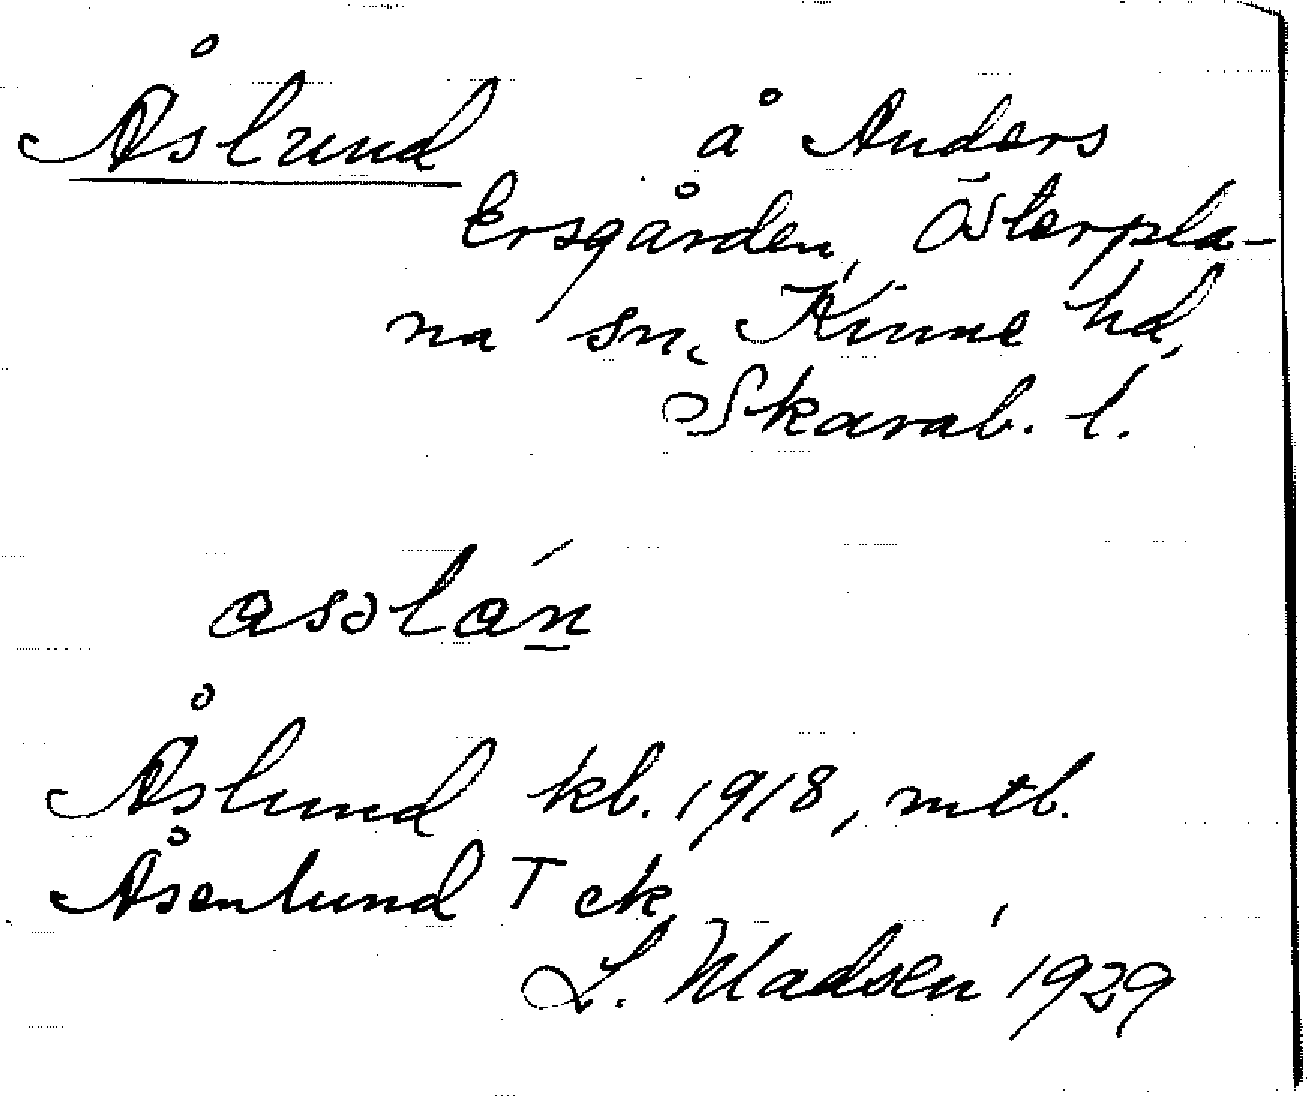 Åslund å Anders
Ersgården, Österpla-
na sn, Kinne hd,
Skarab. l.
asəlán
Åslund kb. 1918, mtb.
Åsenlund T ck
L. Madsén 1929